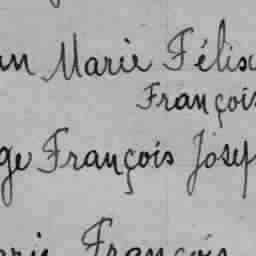 Marie Félix
François
ge François Josep
François